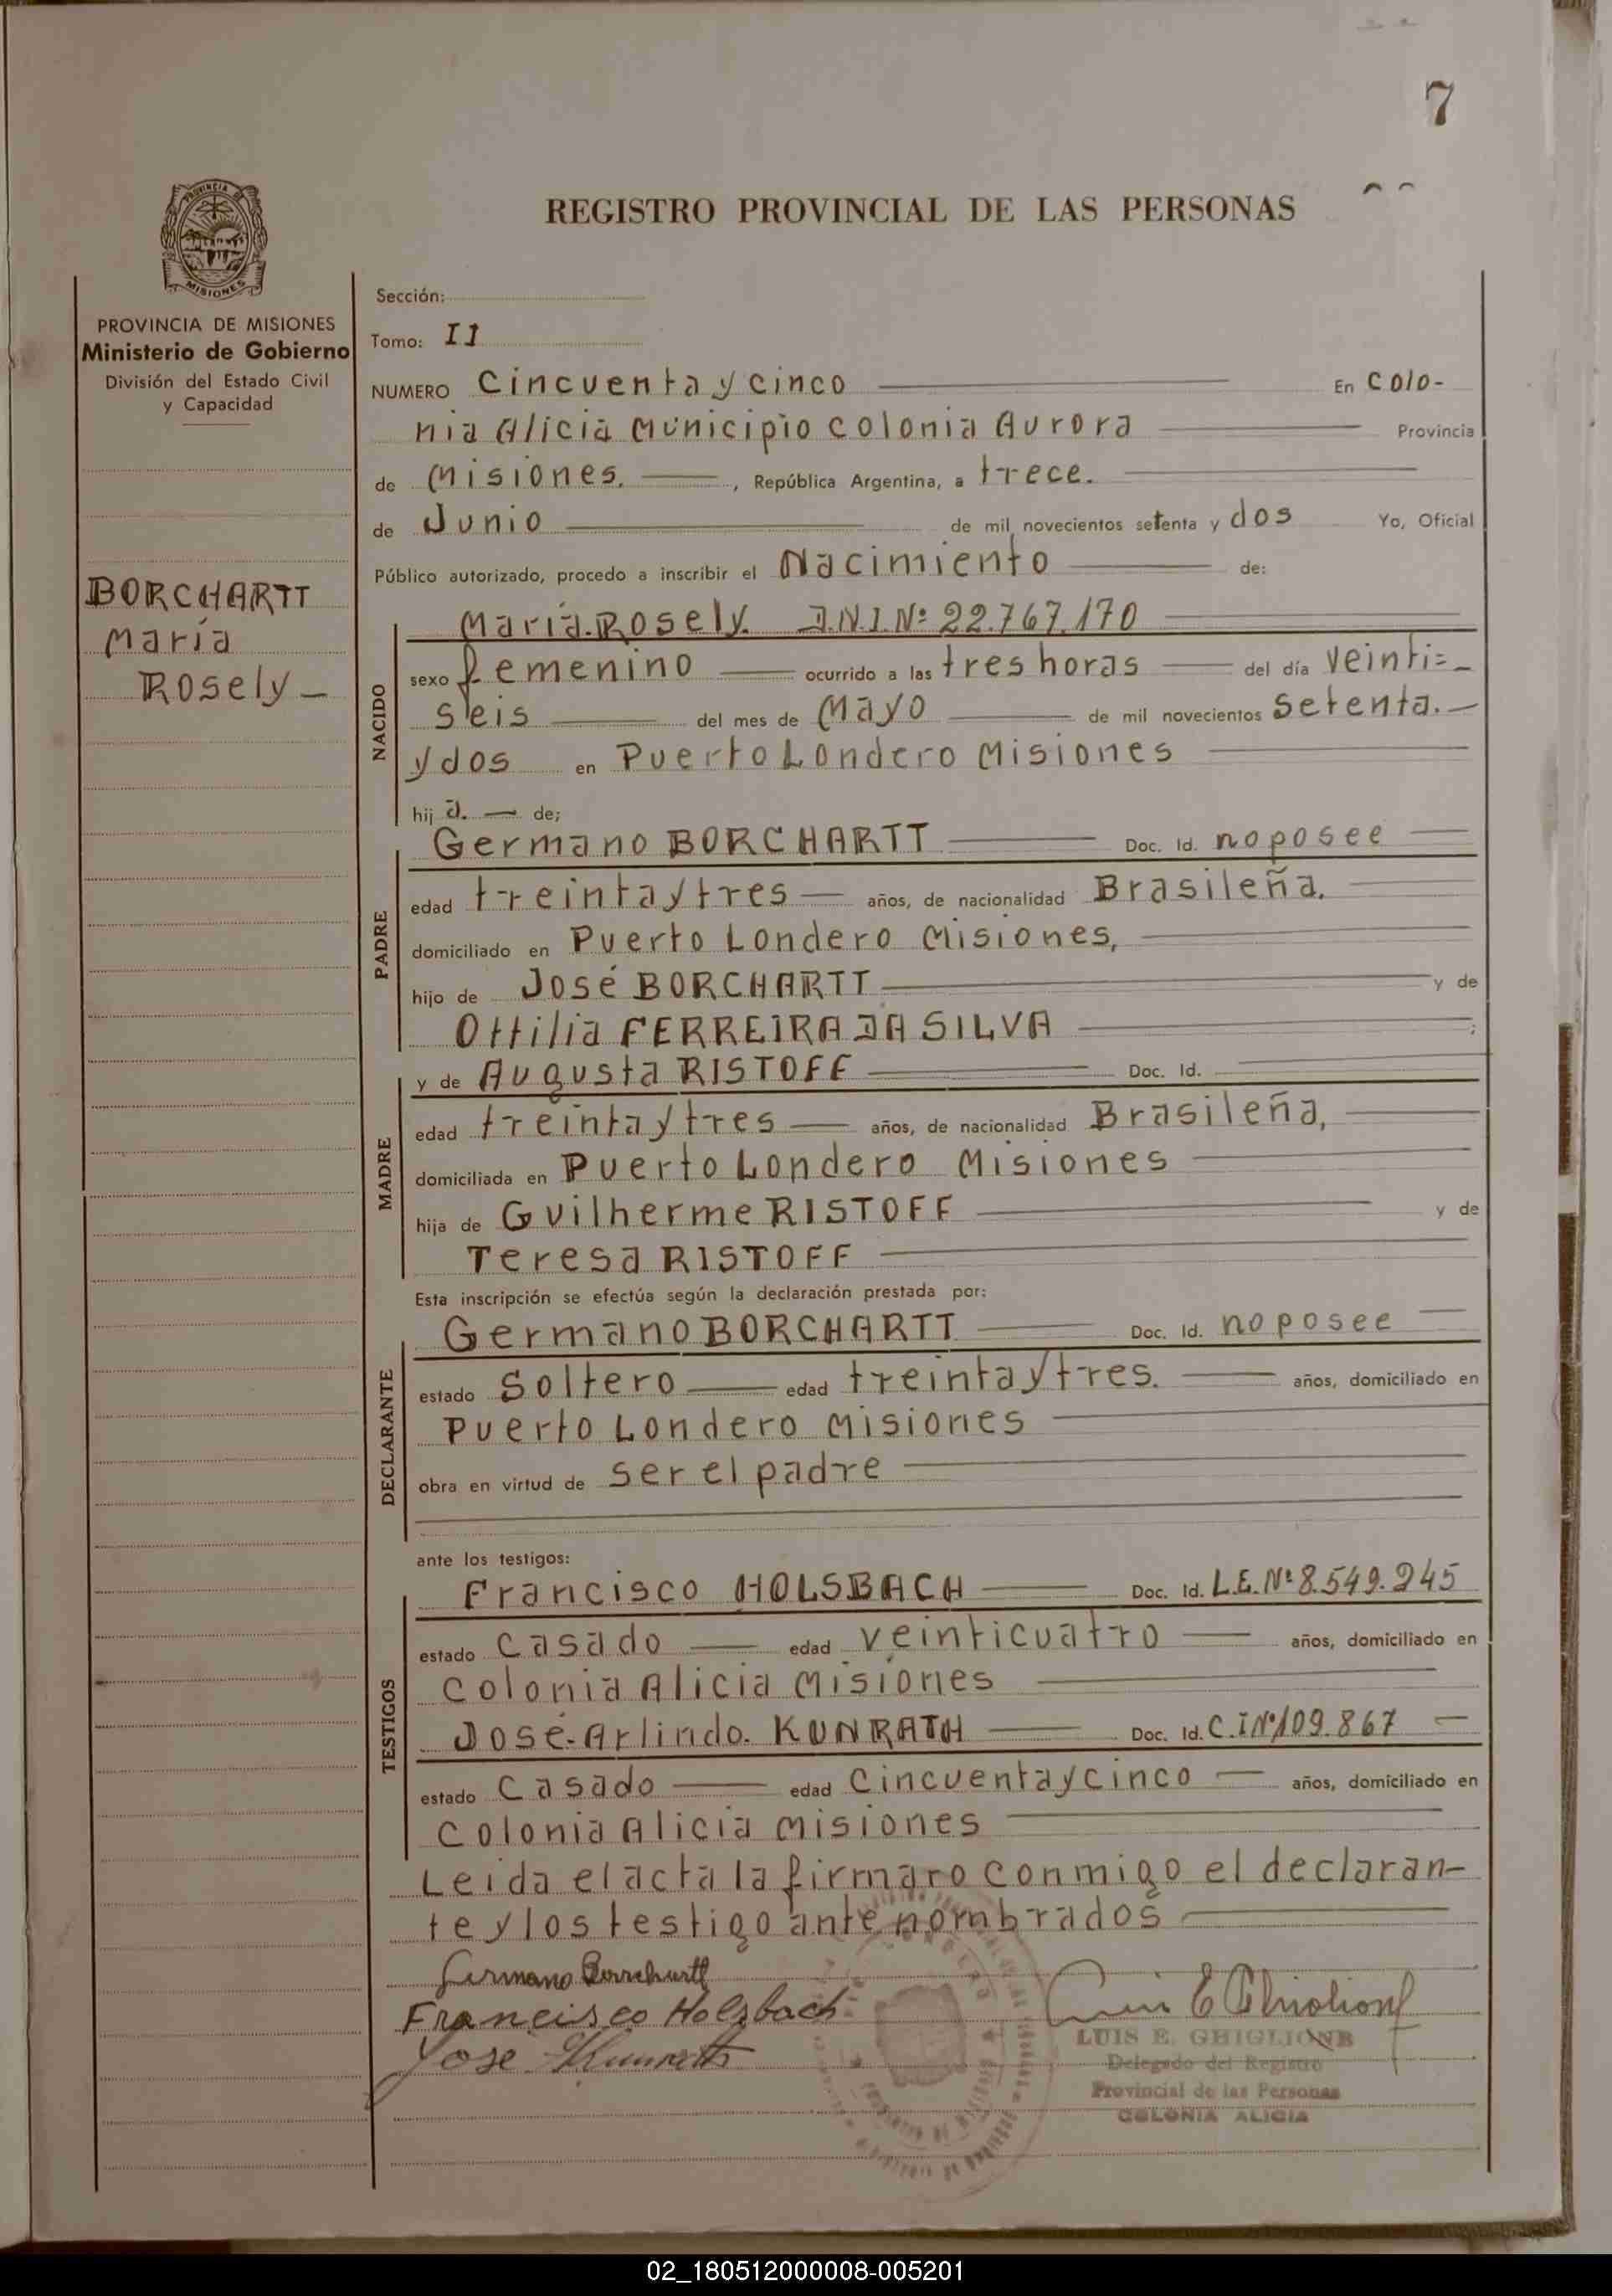 7
REGISTRO PROVINCIAL DE LAS PERSONAS
PROVINCIA DE MISIONES
Ministerio de Gobierno
División del Estado Civil
y Capacidad
BORCHARTT
María
Rosely
Sección:
Tomo: II
NUMERO Cincuenta y cinco En Colo-
nia Alicia Municipio Colonia Aurora Provincia
de Misiones. , República Argentina, a trece.
de Junio de mil novecientos setenta y dos Yo, Oficial
Público autorizado, procedo a inscribir el Nacimiento de:
NACIDO
María Rosely. D.N.I. Nº 22.767.170
sexo femenino ocurrido a las tres horas del día veinti=
seis del mes de Mayo de mil novecientos setenta.
y dos en Puerto Londero Misiones
hij a. de;
PADRE
Germano BORCHARTT Doc. Id. no posee
edad treinta y tres años, de nacionalidad Brasileña.
domiciliado en Puerto Londero Misiones,
hijo de José BORCHARTT y de
Ottilia FERREIRA DA SILVA ;
MADRE
y de Augusta RISTOFF Doc. Id.
edad treinta y tres años, de nacionalidad Brasileña,
domiciliada en Puerto Londero Misiones
hija de Guilherme RISTOFF y de
Teresa RISTOFF
Esta inscripción se efectúa según la declaración prestada por:
DECLARANTE
Germano BORCHARTT Doc. Id. no posee
estado Soltero edad treinta y tres. años, domiciliado en
Puerto Londero Misiones
obra en virtud de ser el padre
ante los testigos:
TESTIGOS
Francisco HOLSBACH Doc. Id. L.E. Nº 8.549.245
estado Casado edad veinticuatro años, domiciliado en
Colonia Alicia Misiones
José Arlindo. KUNRATH Doc. Id. C.I Nº 109.867
estado Casado edad Cincuenta y cinco años, domiciliado en
Colonia Alicia Misiones
Leida el acta la firmaro conmigo el declaran-
te y los testigo ante nombrados
Germano Borrchartt
Francisco Holsbach
Jose Kunrath
LUIS E. GHIGLIONE
Delegado del Registro
Provincial de las Personas
COLONIA ALICIA
02_180512000008-005201